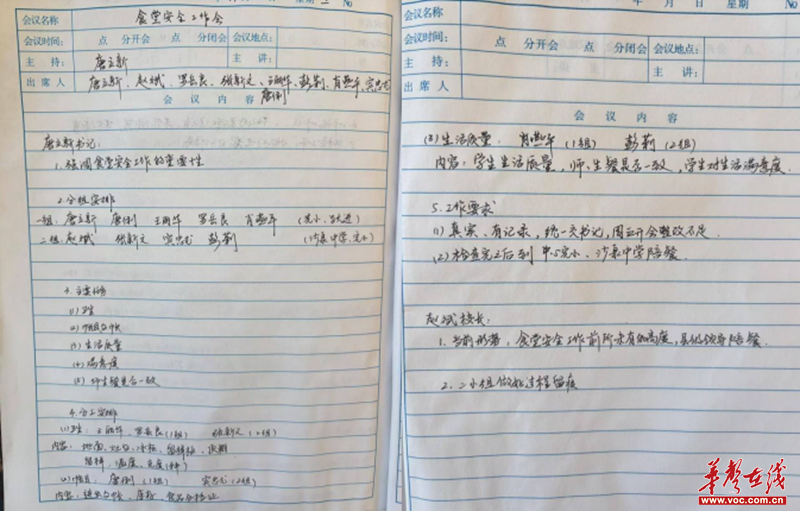 No
会议名称 食堂安全工作会
会议时间: 点 分开会 点 分闭会 会议地点:
主 持: 唐立新 主 讲:
出 席 人 唐立新、赵斌、罗岳良、张新文、王丽华、彭莉、肖燕平、
唐俐
会 议 内 容
唐立新书记:
1. 强调食堂安全工作的重要性
2. 分组安排
一组: 唐立新 唐俐 王丽华 罗岳良 肖燕平
二组: 赵斌 张新文 彭莉 (沙泉中学、完小)
(1) 卫生
(3) 生活质量
(4) 满意度
(5) 师生餐是否一致
4. 分工安排
(1) 卫生: 王丽华、罗岳良 (1组) 张新文 (2组)
内容: 地面、
留样、温度、
唐俐 (1组) (2组)
内容:
年 月 日 星期 No
会议名称
会议时间: 点 分开会 点 分闭会 会议地点:
主 持: 主 讲:
出 席 人
会 议 内 容
(3) 生活质量: 肖燕平 (1组) 彭莉 (2组)
内容: 学生生活质量, 师、生餐是否一致, 学生对生活满意度.
5. 工作要求
(1) 真实、有记录, 统一交书记, 周五开会整改不足.
(2) 检查完之后到 中心完小、沙泉中学陪餐.
赵斌校长:
1. 当前形势, 食堂安全工作前所未有的高度, 县级领导陪餐.
2. 二小组做好过程留痕
华声在线
www.voc.com.cn